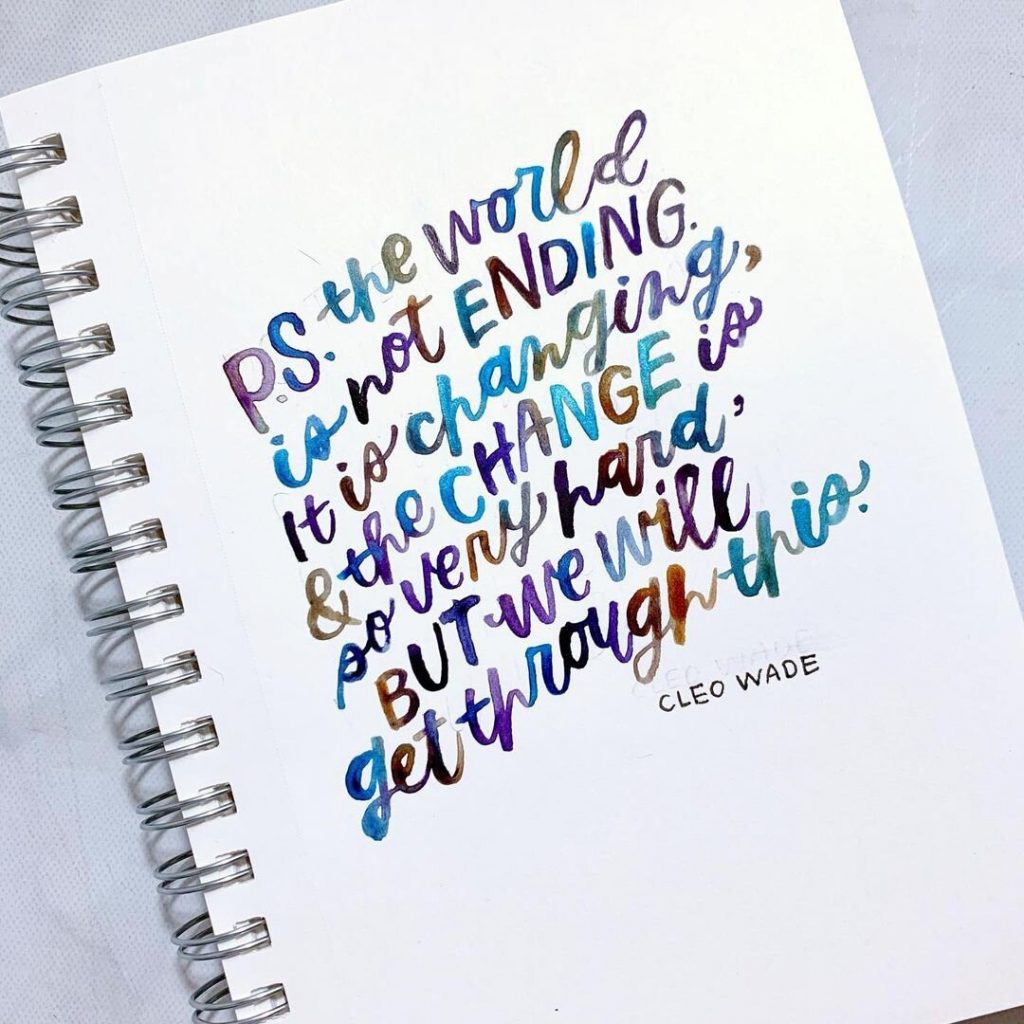 P.S. the world
is not ENDING.
It is changing,
& the CHANGE is
so very hard,
BUT we will
get through this.
CLEO WADE